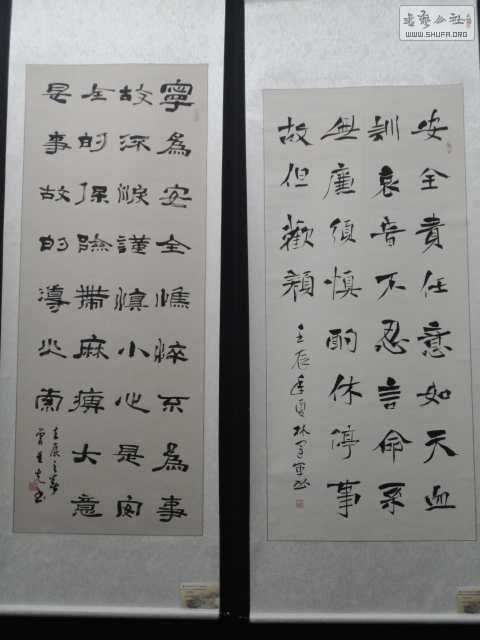 書藝公社
WWW.SHUFA.ORG
安全責任意如天血
訓哀音不忍言命系
無廉須慎酌休停事
故但歡顏
壬辰季夏林
寧為安全憔悴不為事
故流淚謹慎小心是安
全的保險帶麻痹大意
是事故的導火索
壬辰之春